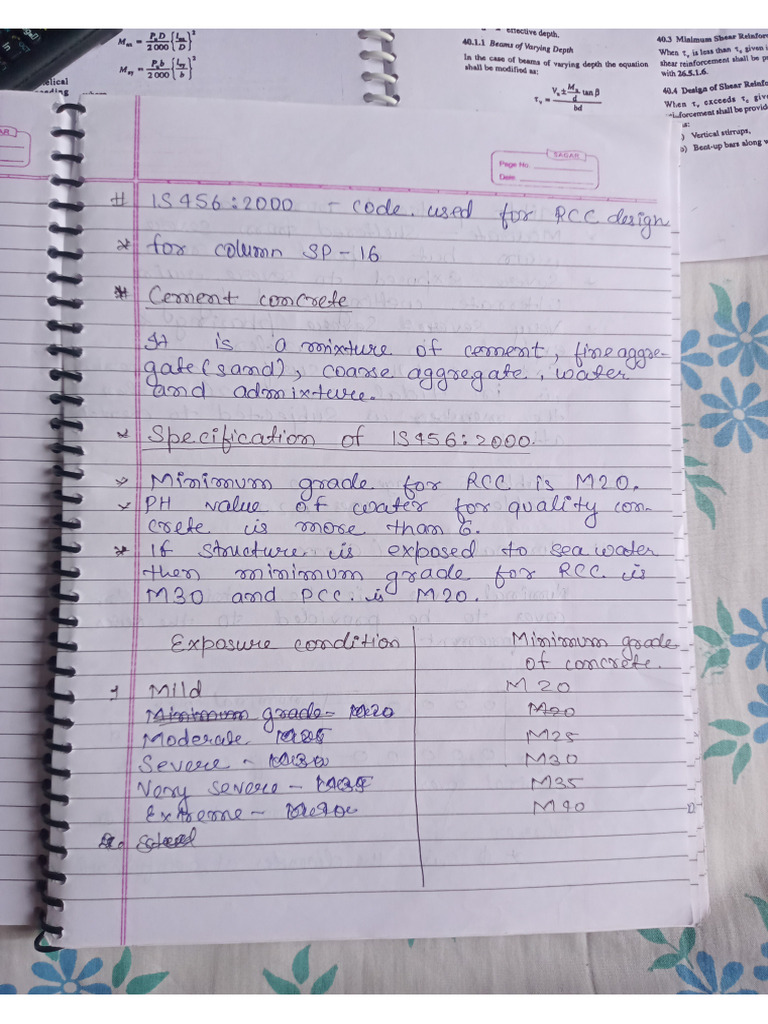 M_ax = P_u D / 2000 {l_ex / D}²
M_ay = P_u b / 2000 {l_ey / b}²
effective depth.
40.1.1 Beams of Varying Depth
In the case of beams of varying depth the equation
shall be modified as:
τ_v = (V_u ± M_u/d tan β) / bd
40.3 Minimum Shear Reinfor
When τ_v is less than τ_c given i
shear reinforcement shall be p
with 26.5.1.6.
40.4 Design of Shear Reinfo
When τ_v exceeds τ_c give
Vertical stirrups,
b) Bent-up bars along w
SAGAR
Page No.
Date
# IS456:2000 - code used for RCC design
* for column SP-16
* Cement concrete
It is a mixture of cement, fine aggre-
gate (sand), coarse aggregate, water
and admixture.
* Specification of IS456:2000.
* Minimum grade for RCC is M20.
* PH value of water for quality con-
crete is more than 6.
* If structure is exposed to sea water
then minimum grade for RCC is
M30 and PCC is M20.
Exposure condition Minimum grade
of concrete.
1 Mild M20
Minimum grade- M20 M20
Moderate M25 M25
Severe - M30 M30
Very severe - M35 M35
Extreme - M40 M40